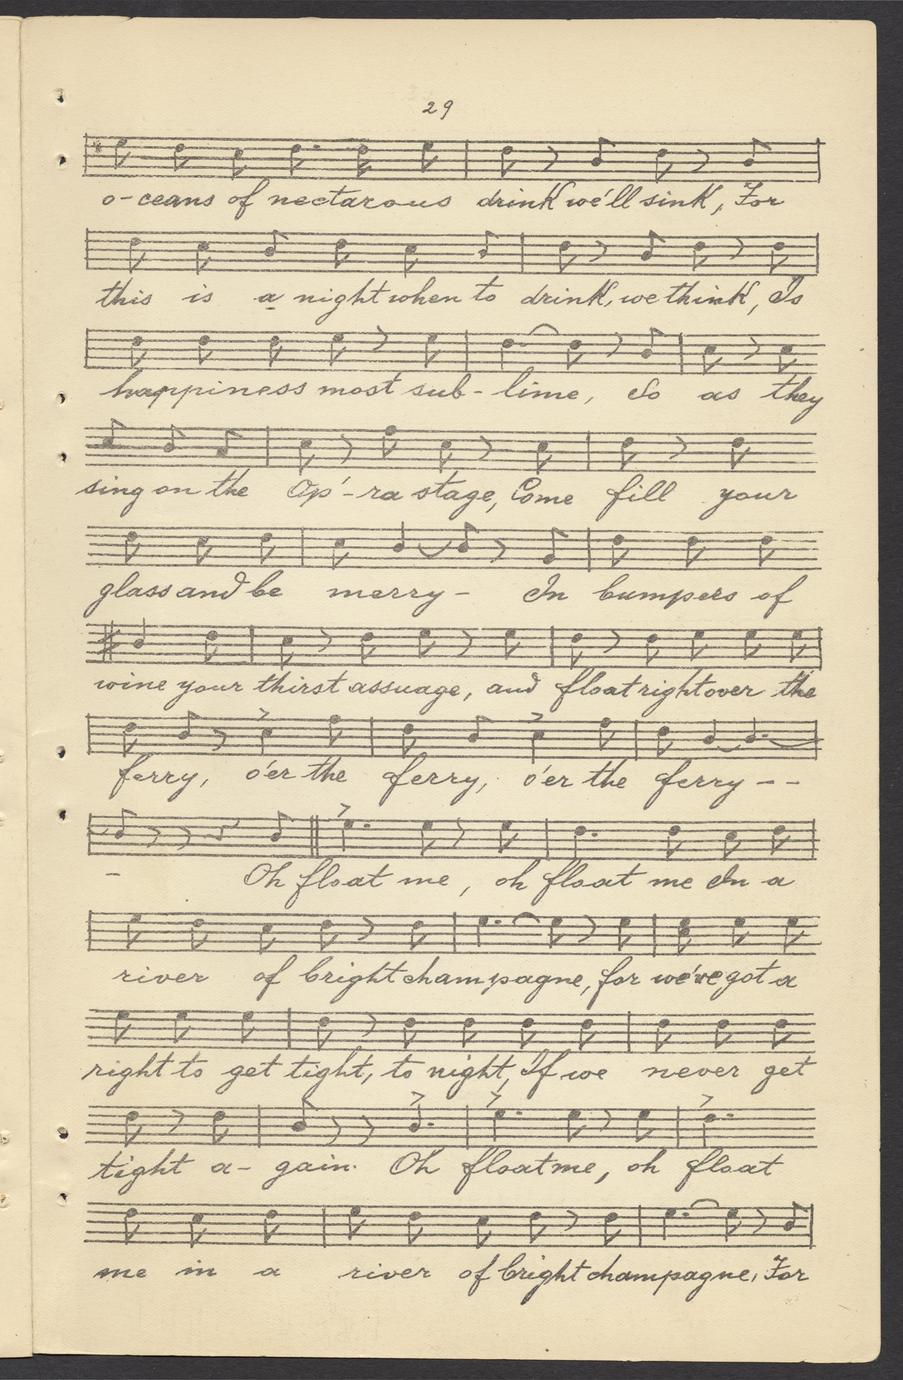 29
o-ceans of nectarous drink we'll sink, For
this is a night when to drink, we think, Is
happiness most sub-lime, So as they
sing on the Op'-ra stage, Come fill your
glass and be merry- In bumpers of
wine your thirst assuage, and float right over the
ferry, o'er the ferry, o'er the ferry--
- Oh float me, oh float me In a
river of bright champagne, for we've got a
right to get tight, to night, If we never get
tight a-gain. Oh float me, oh float
me in a river of bright champagne, For